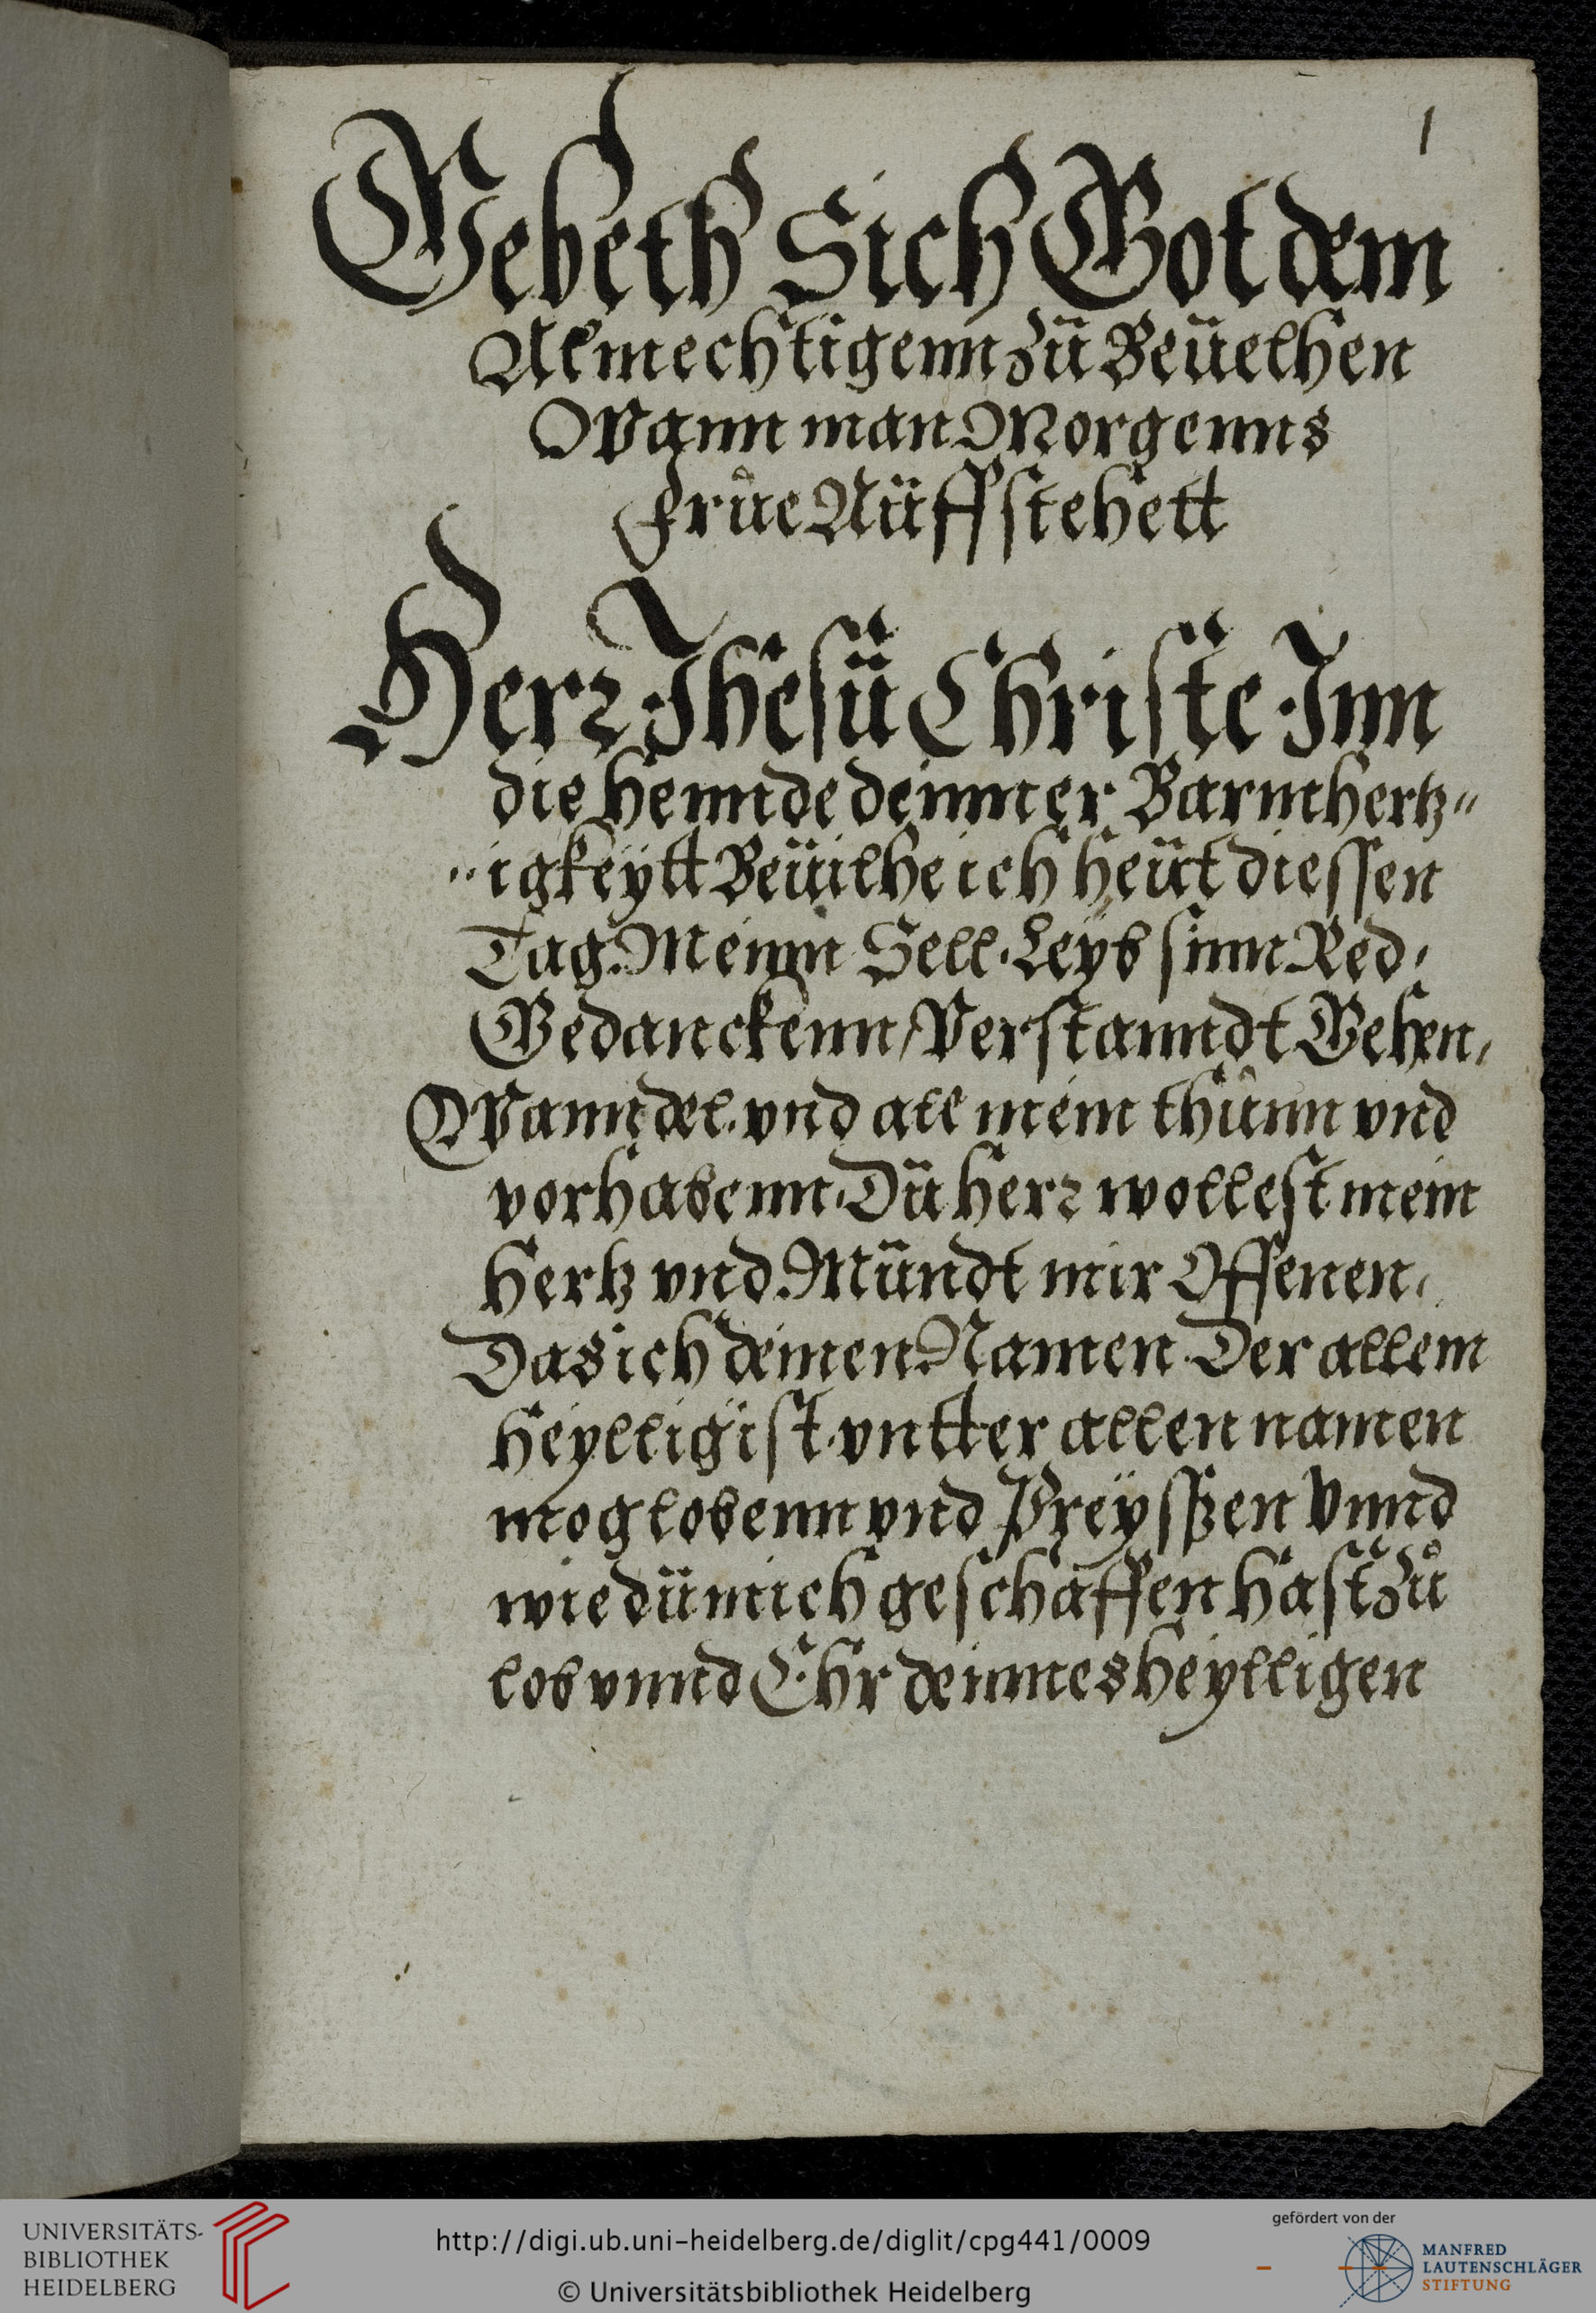 1
Gebeth Sich Got dem
Almechtigenn Zü Beüelhen
Wann man Morgenns
früe Aüffstehett
Herr Jhesü Christe Jnn
die hennde deinner Barmhertz„
„igkeytt Beüilhe ich heüt diessen
Tag Meinn Sell. Leyb sinn Red,
Gedanckenn, Verstanndt Gehen,
Wanndel. vnd all mein thůnn vnd
vorhabenn. Dü herr wollest mein
hertz vnd Mündt mir Offenen,
Das ich deinen Namen Der allein
heyllig ist. vntter allen namen
mog lobenn vnd Preyßen Vnnd
wie dü mich geschaffen hast Zů
lob vnnd Ehr deinnes heylligen
UNIVERSITÄTS-
BIBLIOTHEK
HEIDELBERG
http://digi.ub.uni-heidelberg.de/diglit/cpg441/0009
© Universitätsbibliothek Heidelberg
gefördert von der
MANFRED
LAUTENSCHLÄGER
STIFTUNG